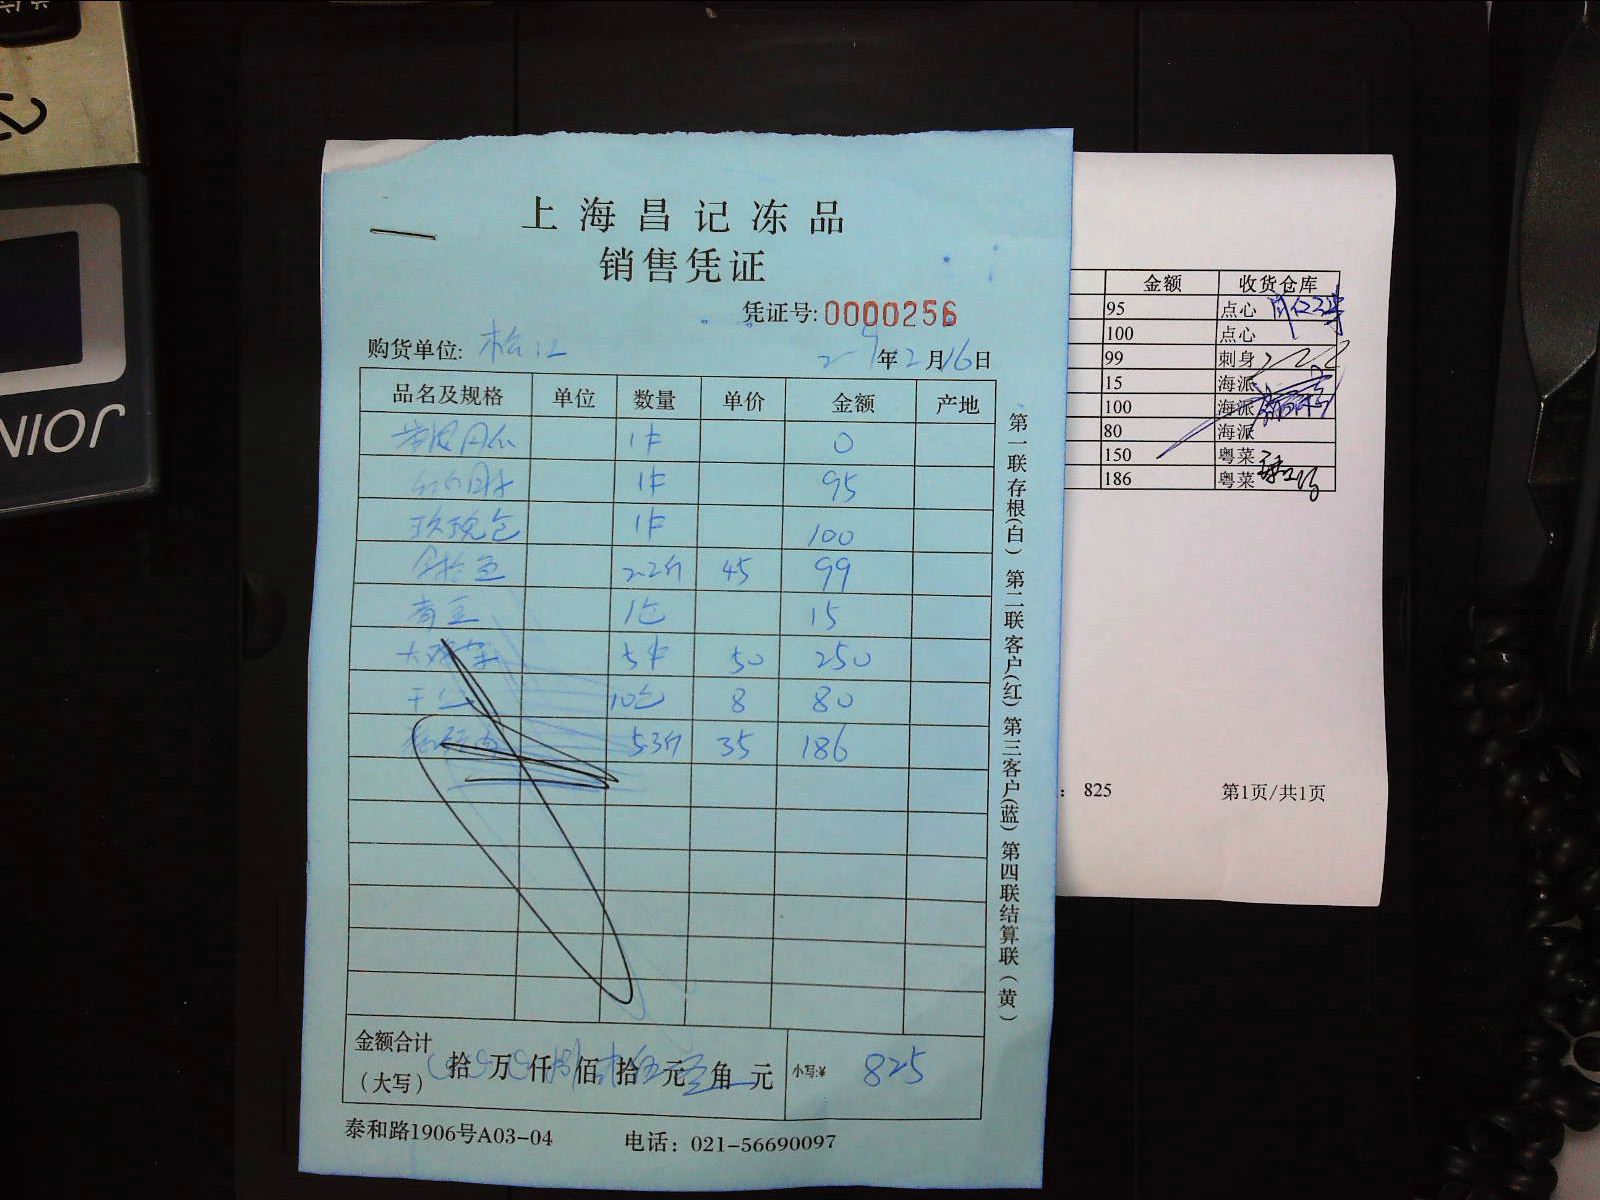 上海昌记冻品
销售凭证
凭证号:0000256
购货单位: 松江 年2月16日
品名及规格 单位 数量 单价 金额 产地
1件 0
1件 95
玫瑰包 1件 100
2.2斤 45 99
青豆 1包 15
5件 50 250
10包 8 80
5.3斤 35 186
金额合计
(大写) 拾 万 仟 佰 拾 元 角 元 小写:¥ 825
泰和路1906号A03-04 电话: 021-56690097
第一联存根(白) 第二联客户(红) 第三客户(蓝) 第四联结算联(黄)
金额 收货仓库
95 点心
100 点心
99 刺身
15 海派
100 海派
80 海派
150 粤菜
186 粤菜
: 825 第1页/共1页
JOIN